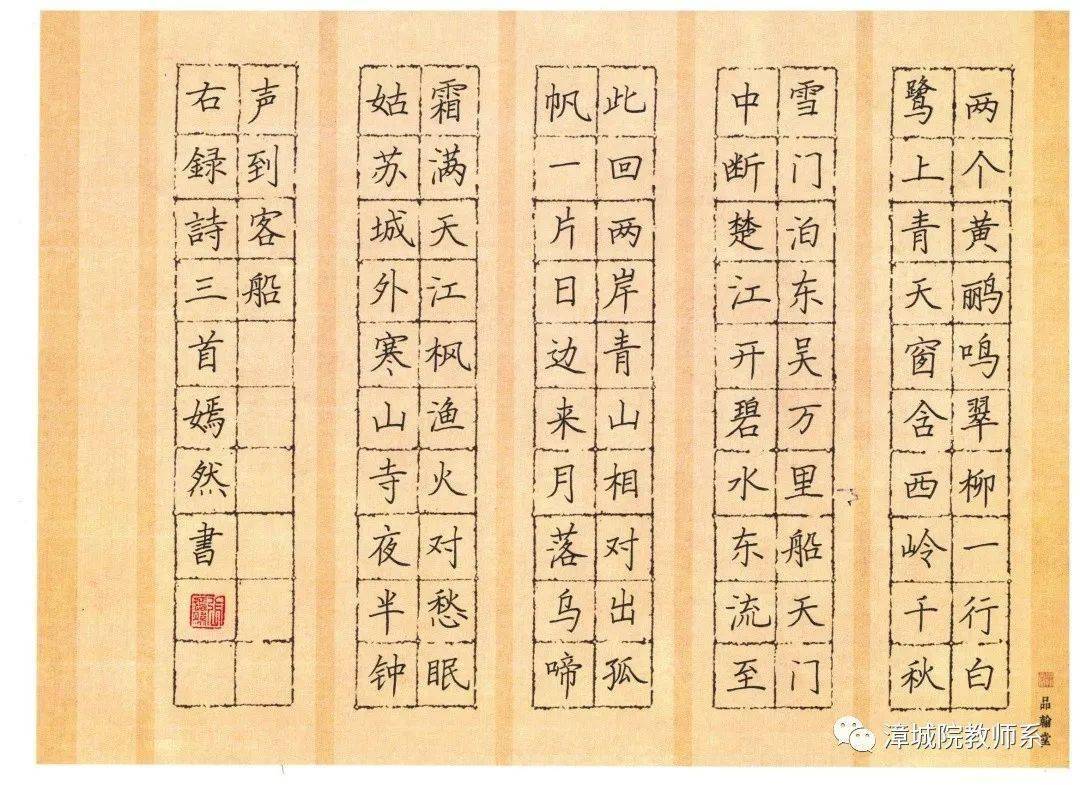 两个黄鹂鸣翠柳一行白
鹭上青天窗含西岭千秋
雪门泊东吴万里船天门
中断楚江开碧水东流至
此回两岸青山相对出孤
帆一片日边来月落乌啼
霜满天江枫渔火对愁眠
姑苏城外寒山寺夜半钟
声到客船
右録詩三首嫣然書
品翰堂
漳城院教师系